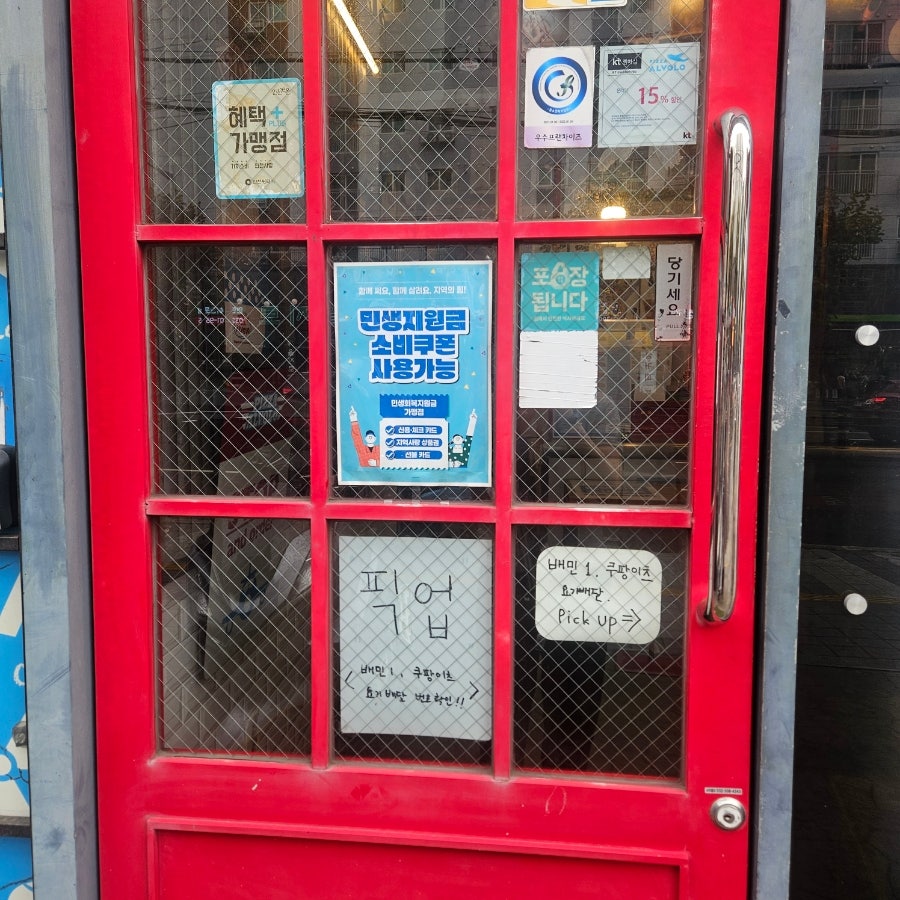 혜택+
PLUS
가맹점
우수프랜차이즈
kt 멤버십
PIZZA
ALVOLO
15% 할인
kt
함께 써요, 함께 살려요. 지역의 힘!
민생지원금
소비쿠폰
사용가능
민생회복지원금
가맹점
신용·체크 카드
지역사랑 상품권
선불 카드
포장
됩니다
당기세요
PULL
픽업
<배민1. 쿠팡이츠
요기배달 번호확인!!>
배민1. 쿠팡이츠
요기배달.
Pick up ⇒